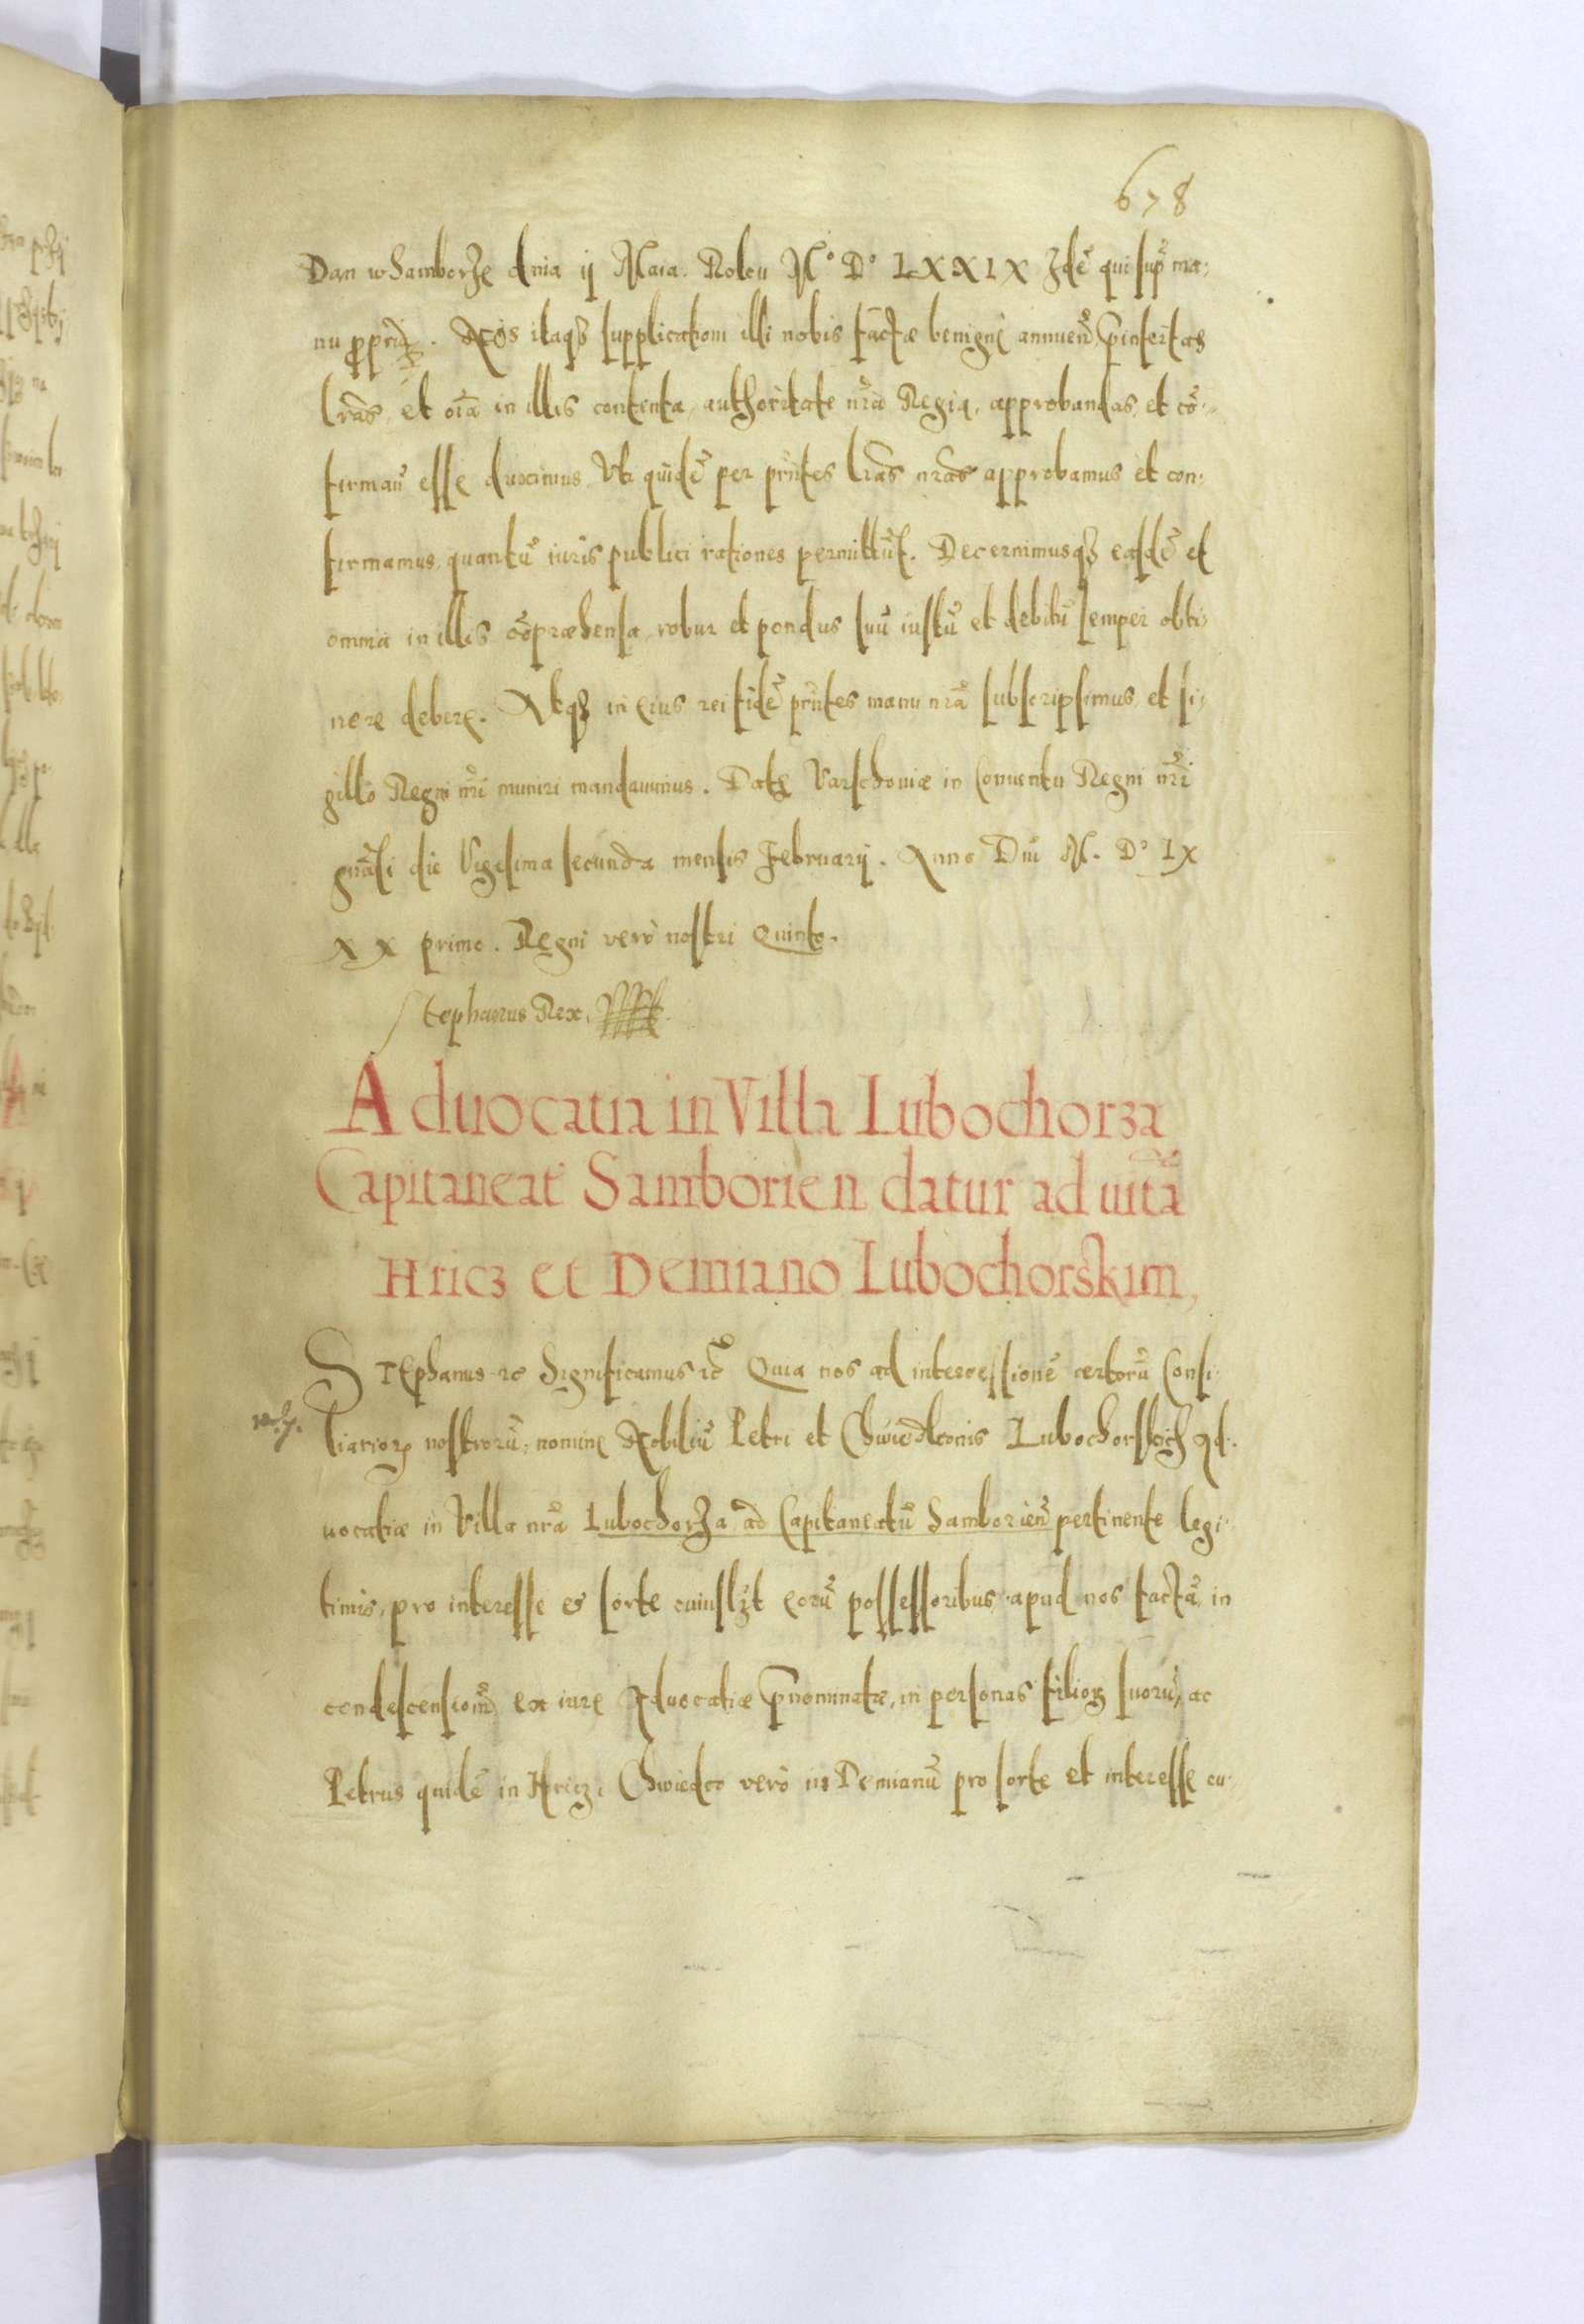 678
Dan w Samborze dnia ij Maia. Roku M° D° LXXIX Idē qui supͬ ma:
nu ppria. Nos itaqꝫ supplicationi illi nobis factæ benignè annuen̄, pinsertas
lr̄as, et oīa in illis contenta, authoritate nr̄a Regia, approbandas, et cō-
firman̄ esse duximus. Uti quidē per pn̄tes lr̄as nr̄as approbamus et con-
firmamus, quantū iuris publici rationes permittūt. Decernimusqꝫ easdē et
omnia in illis cōpræhensa, robur et pondus suū iustū et debitū semper obti-
nere debere. Atqꝫ in eius rei fidē pn̄tes manu nr̄a subscripsimus, et si-
gillo Regni nr̄i muniri mandauimus. Datę Varschouiæ in Conuentu Regni nr̄i
gnāli die Vigesima secunda mensis Februarij. Anno Dn̄i M. D° LX
XX primo. Regni verò nostri Quinto.
Stephanus Rex.
Aduocatia in Villa Lubochorza
Capitaneat Samborien datur ad uitā
Hricz et Demiano Lubochorskim,
Stephanus ꝛc Significamus ꝛc̄ Quia nos ad intercessionē certorū Consi-
liarioꝝ nostrorū, nomine Nobiliū Petri et Chwiedkonis Lubochorskich Ad-
uocatiæ in Villa nr̄a Lubochorza ad Capitaneatū Samborien̄ pertinente legi-
timis, pro interesse et sorte cuiuslꝫt eorū possessoribus, apud nos factā, in
condescensionē, ex iure Aduocatiæ pnominatæ, in personas filioꝝ suorū, ac
Petrus quidē in Hricz, Chwiedco verò in Demianū pro sorte et interesse cu-